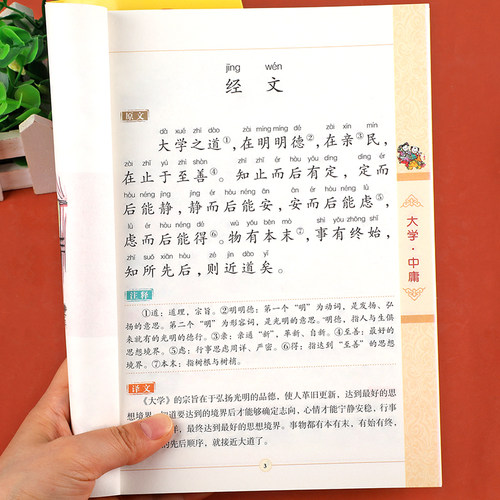 jīng wén
经 文
原文
dà xué zhī dào zài míng míng dé zài xīn mín
大学之道①,在明明德②,在亲③民,
zài zhǐ yú zhì shàn zhī zhǐ ér hòu yǒu dìng dìng ér
在止于至善④。知止而后有定,定而
hòu néng jìng jìng ér hòu néng ān ān ér hòu néng lǜ
后能静,静而后能安,安而后能虑⑤,
lǜ ér hòu néng dé wù yǒu běn mò shì yǒu zhōng shǐ
虑而后能得⑥。物有本末⑦,事有终始,
zhī suǒ xiān hòu zé jìn dào yǐ
知所先后,则近道矣。
注释
①道:道理,宗旨。②明明德:第一个“明”为动词,是发扬、弘
扬的意思。第二个“明”为形容词,是光明的意思。明德,指人与生俱
来就有的光明的德行。③亲:亲通“新”,革新、自新。④至善:最好的
思想境界。⑤虑:行事思虑周详、严密。⑥得:指达到“至善”的思想
境界。⑦本末:指树根与树梢。
译文
《大学》的宗旨在于弘扬光明的品德,使人革旧更新,达到最好的思
想境界。知道要达到的境界后才能够确定志向,心情才能宁静安稳、行事
,最终达到最好的思想境界。事物都有本有末,有始有终,
的先后顺序,就接近大道了。
3
大学·中庸